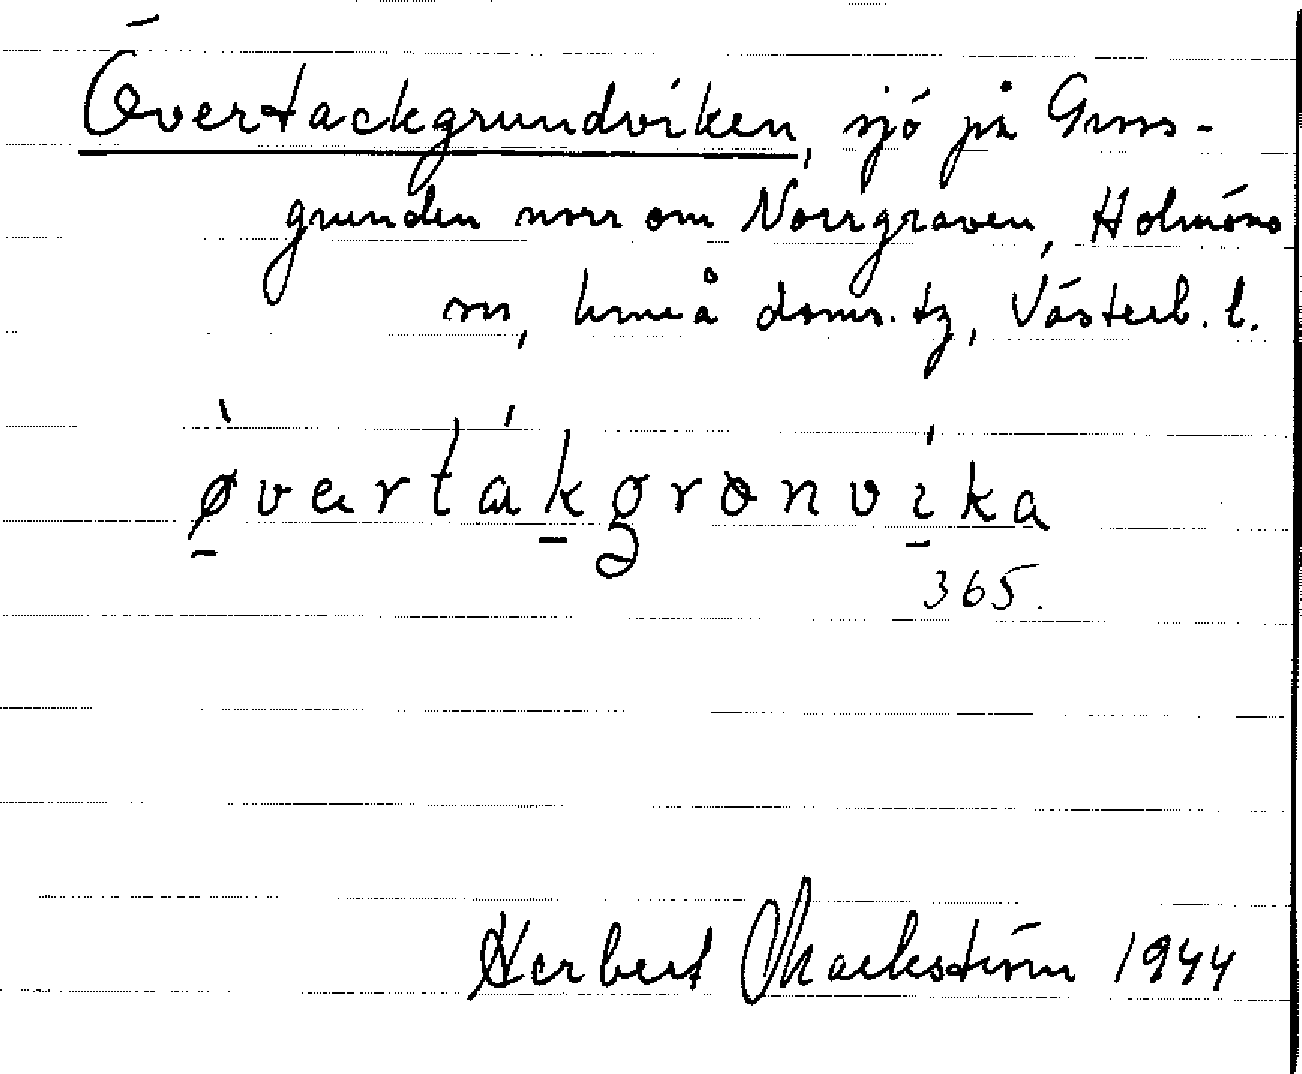 Övertackgrundviken, sjö på Gross-
grunden norr om Norrgraven, Holmöns
sn, Umeå doms. tg, Västerb. l.
øvertakgronvika
365.
Herbert Markström 1944